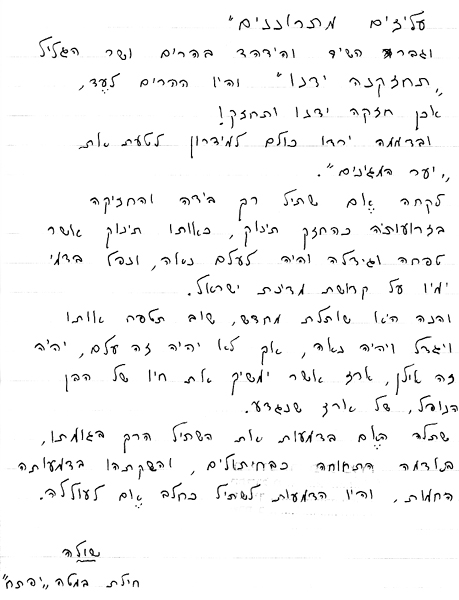 עליזים מתרוננים"
וגבר השיר והידהד בהרים ושר הגליל
"תחזקנה ידנו" והיו ההרים לעֵד,
אכן חזקה ידנו ותחזק!
ובדממה ירדו כולם למידרון לטעת את
"יער המגינים".
לקחה אֵם שתיל רק בידה והחזיקה
בזרועותיה כהחזק תינוק, כאותו תינוק אשר
טפחה וגידלה והיה לעלם נאה, ונפל בדמי
ימיו על קדושת מדינת ישראל.
והנה היא שותלת מחדש, שוב תטפח אותו
ויגדל ויהיה נאה, אך לא יהיה זה עלם, יהיה
זה אילן, ארז אשר ימשיך את חיו של הבן
הנופל, של ארז שנגדע.
שתלה האֵם בדמעות את השתיל הרך בגומתו,
באדמה התחוחה כבחיתולים, והשקתהו בדמעותיה
החמות, והיו הדמעות לשתיל כחלב אֵם לעוללה.
שולה
חילת במטה "יפתח"